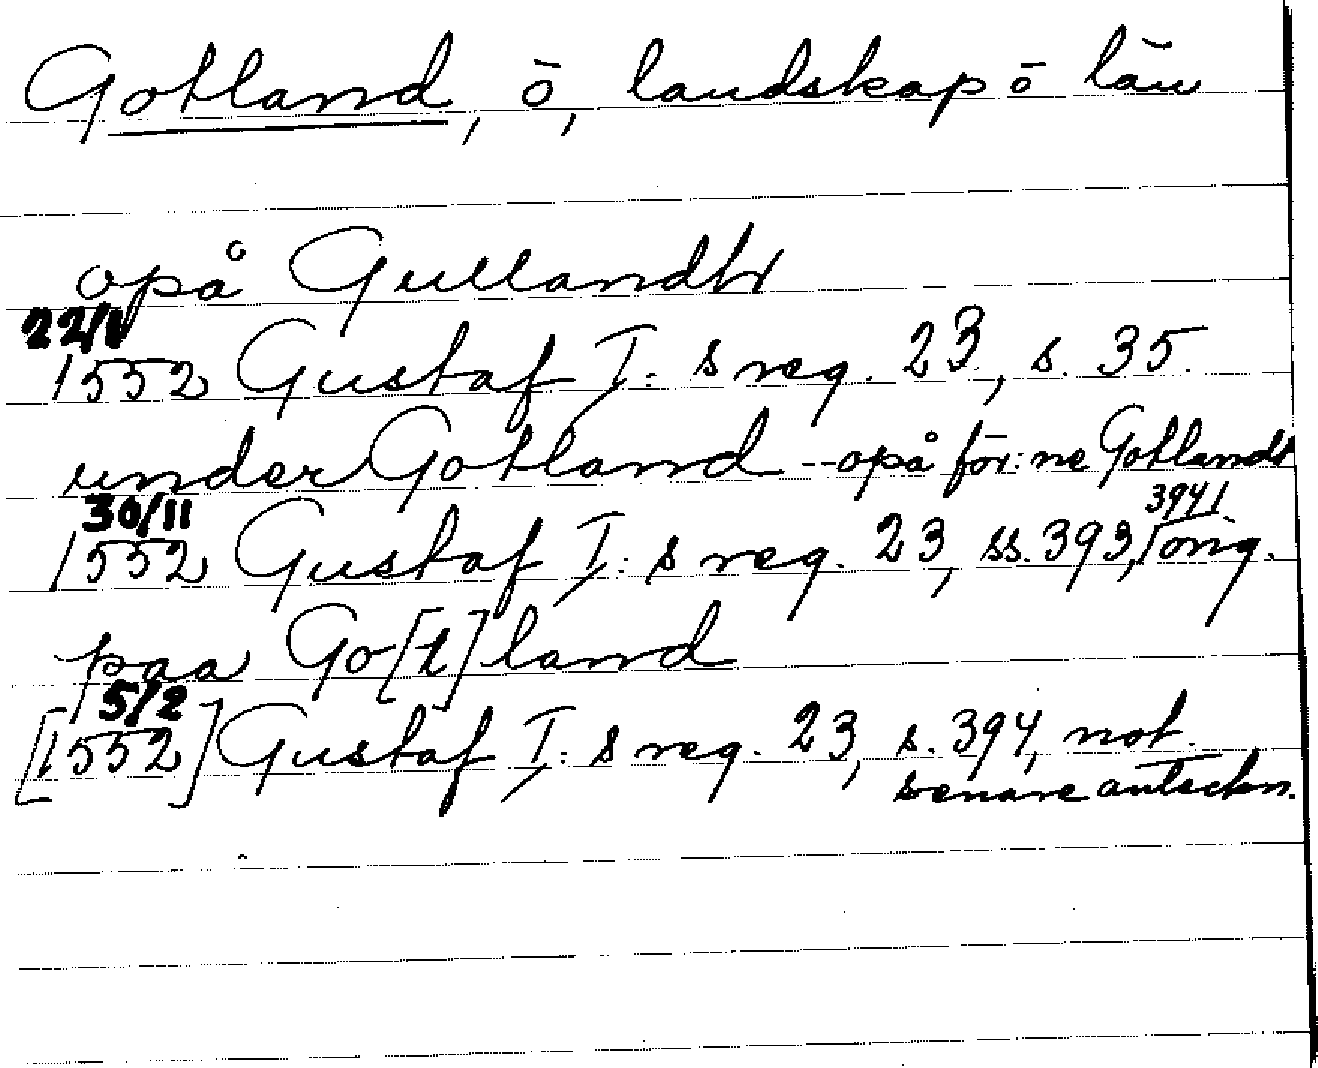 Gotland, ö, landskap o län
opå Gullandtt
22/1
1552 Gustaf I:s reg. 23, s. 35.
under Gotland -- opå för:ne Gotlandt
30/11 394
1552 Gustaf I:s reg. 23, ss. 393, orig.
paa Go[t]land
5/2
[1552] Gustaf I:s reg. 23, s. 394, not.
senare anteckn.